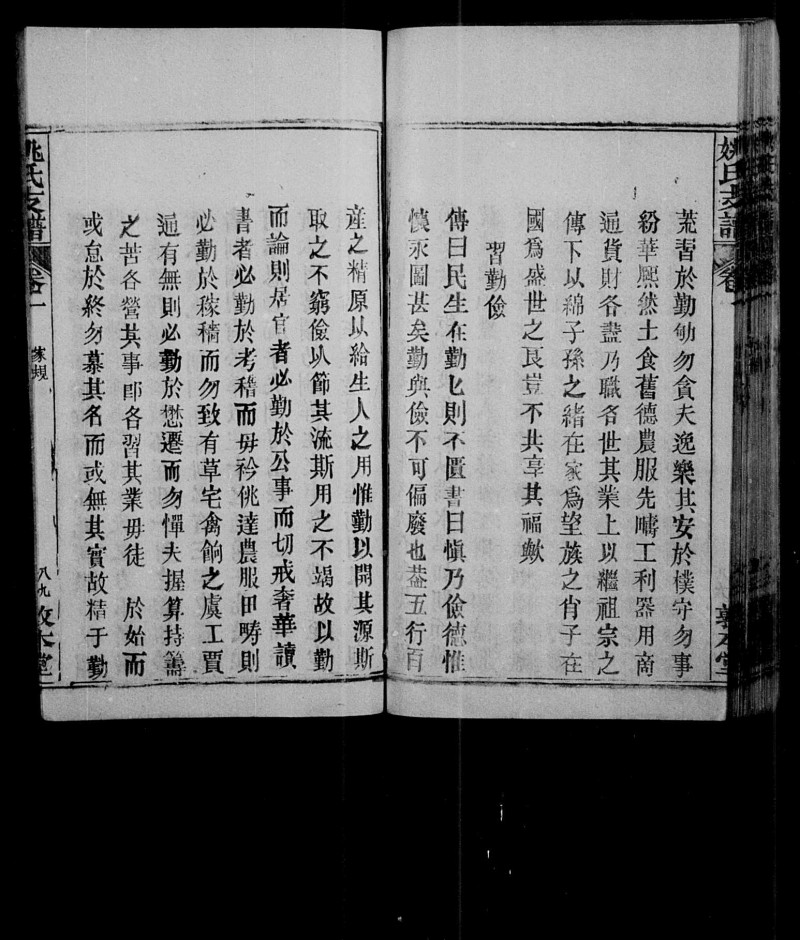 姚氏支譜
卷
敦本堂
荒習於勤劬勿貪夫逸樂其安於樸守勿事
紛華熈然士食舊德農服先疇工利器用商
通貨財各盡乃職各世其業上以繼祖宗之
傳下以綿子孫之緒在家爲望族之肖子在
國爲盛世之良豈不共享其福歟
習勤儉
傳曰民生在勤匕則不匱書曰愼乃儉德惟
懷永圖甚矣勤與儉不可偏廢也葢五行百
產之精原以給生人之用惟勤以開其源斯
取之不窮儉以節其流斯用之不竭故以勤
而論則居官者必勤於公事而切戒奢華讀
書者必勤於考稽而毋衿佻達農服田疇則
必勤於稼穡而勿致有草宅禽餉之虞工賈
通有無則必勤於懋遷而勿憚夫握算持籌
之苦各營其事卽各習其業毋徒 於始而
或怠於終勿慕其名而或無其實故精于勤
姚氏支譜
卷一
家規
八九
敦本堂